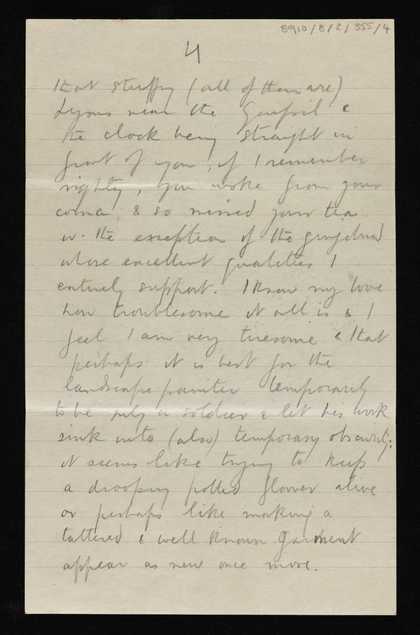 8910/8/2/355/4
4
that stuffy (all of them are)
Lyons near the &
the clock being straight in
front of you, if I remember
rightly, you woke from your
coma, & so missed your tea
w. the exception of the gingerbread
whose excellent qualities I
entirely support. I know my love
how troublesome it all is & I
feel I am very tiresome & that
perhaps it is best for the
landscape painter temporarily
to be only a soldier & let his work
sink into (also) temporary obscurity:
it seems like trying to keep
a drooping potted flower alive
or perhaps like making a
tattered & well known garment
appear as new once more.